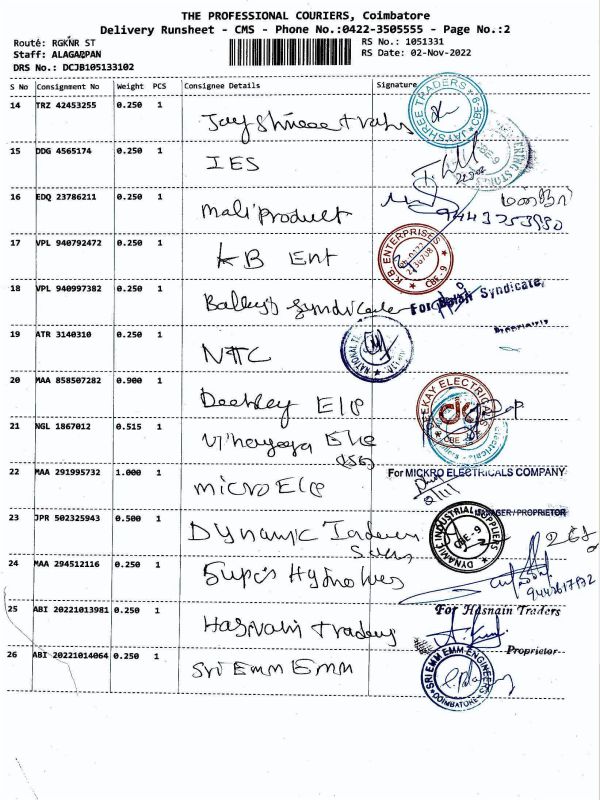 THE PROFESSIONAL COURIERS, Coimbatore
Delivery Runsheet - CMS - Phone No.:0422-3505555 - Page No.:2
Route: RGKNR ST
Staff: ALAGAPPAN
DRS No.: DCJB105133102
RS No.: 1051331
RS Date: 02-Nov-2022
S No Consignment No Weight PCS Consignee Details Signature
14 TRZ 42453255 0.250 1
JAYSHREE TRADERS CBE-9
15 DDG 4565174 0.250 1 IES
CBE-9
16 EDQ 23786211 0.250 1 mali product
9443253930
17 VPL 940792472 0.250 1 KB Ent
K.B. ENTERPRISES CBE-9
18 VPL 940997382 0.250 1
For Syndicate
19 ATR 3140310 0.250 1 NTC
20 MAA 858507282 0.900 1 Deekay Ele
DEEKAY ELECTRICALS CBE
21 NGL 1867012 0.515 1 Vinayaga Ele
22 MAA 291995732 1.000 1 micro Ele
For MICKRO ELECTRICALS COMPANY
MANAGER/PROPRIETOR
23 JPR 502325943 0.500 1 Dynamic
DYNAMIC INDUSTRIAL SUPPLIERS CBE-9
24 MAA 294512116 0.250 1
25 ABI 20221013981 0.250 1 Hasnain traders
For Hasnain Traders
Proprietor
26 ABI 20221014064 0.250 1 Sri Emm Emm
SRI EMM EMM ENGINEERS COIMBATORE